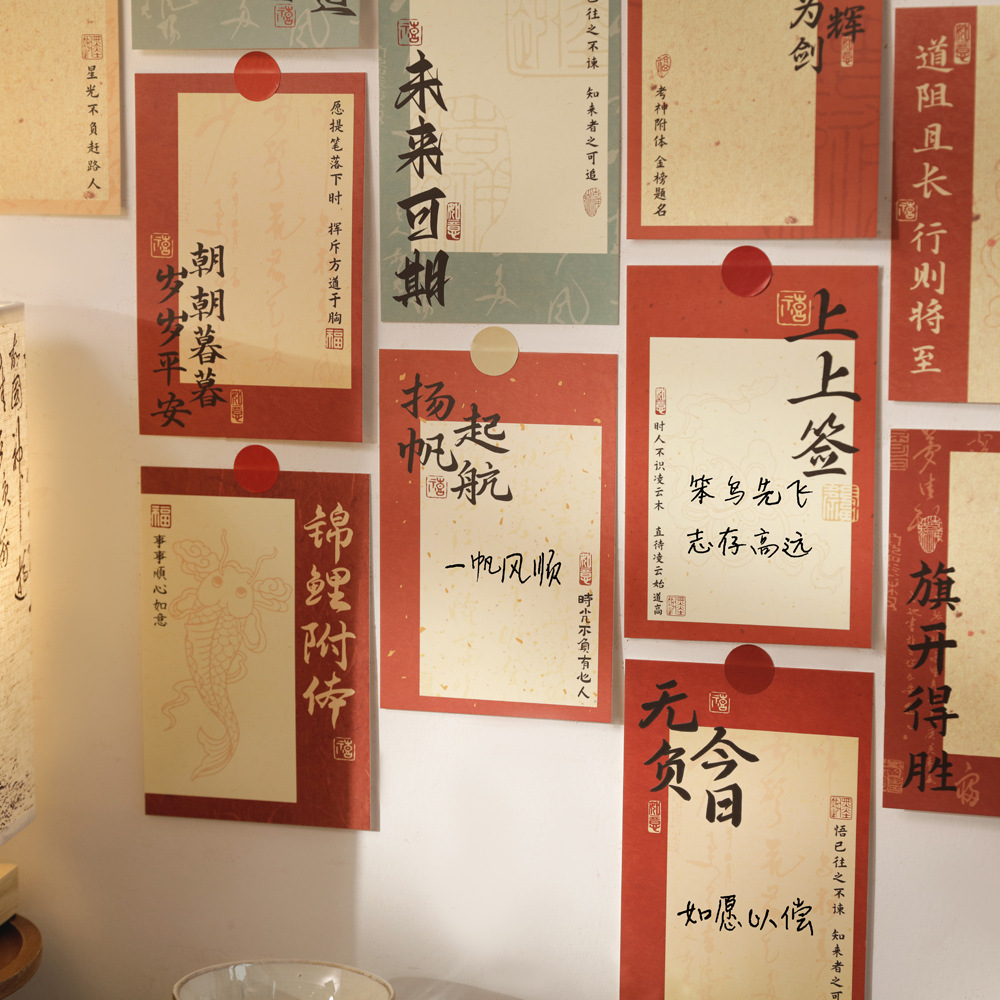 星光不负赶路人
朝朝暮暮
岁岁平安
愿提笔落下时 挥斥方遒于胸
福
锦鲤附体
福
事事顺心如意
未来可期
已往之不谏 知来者之可追
扬帆
起航
一帆风顺
时光不负有心人
为剑
辉
考神附体 金榜题名
上上签
时人不识凌云木 直待凌云始道高
笨鸟先飞
志存高远
无负
今日
悟已往之不谏 知来者之可
如愿以偿
道阻且长 行则将至
旗开得胜